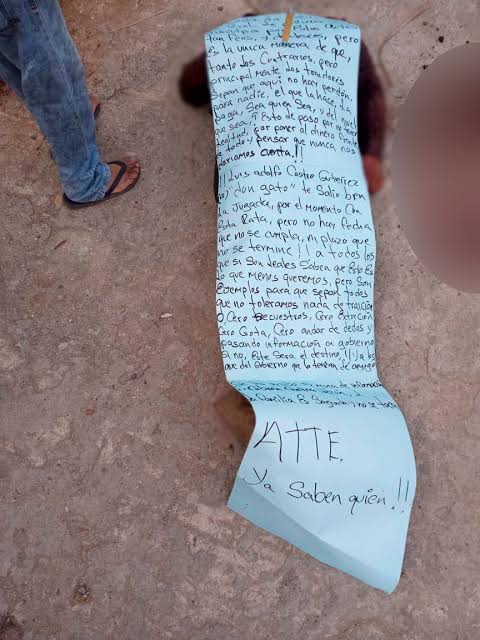 disculpa por estos actos
tan feos, pero
es la unica manera de que,
tanto los contrarios, pero
principal mente los traidores
sepan que aqui no hay perdón,
para nadie, el que la hace, la
paga, sea quien sea, y del nivel
que sea, Esto le paso por no tener
lealtad, por poner al dinero frente
de todo y pensar que nunca, nos
dariamos cuenta.!!
!! Luis adolfo Castro Gutierrez
(a) "don gato" te salio bien
la Jugada, por el momento con
esta Rata, pero no hay fecha
que no se cumpla, ni plazo que
no se termine!!! a todos los
que si son leales saben que esto es
lo que menos queremos, pero son
Ejemplos para que sepan todos
que no toleramos nada de traición
Cero Secuestros, Cero Extorción
Cero Gota, Cero andar de dedos y
pasando información al gobierno
si no, Este Sera el destino,!! y a los
que del gobierno que lo tenian de amigo
de información
la familia es Sagrada y no se toca
ATTE,
Ya Saben quien.!!